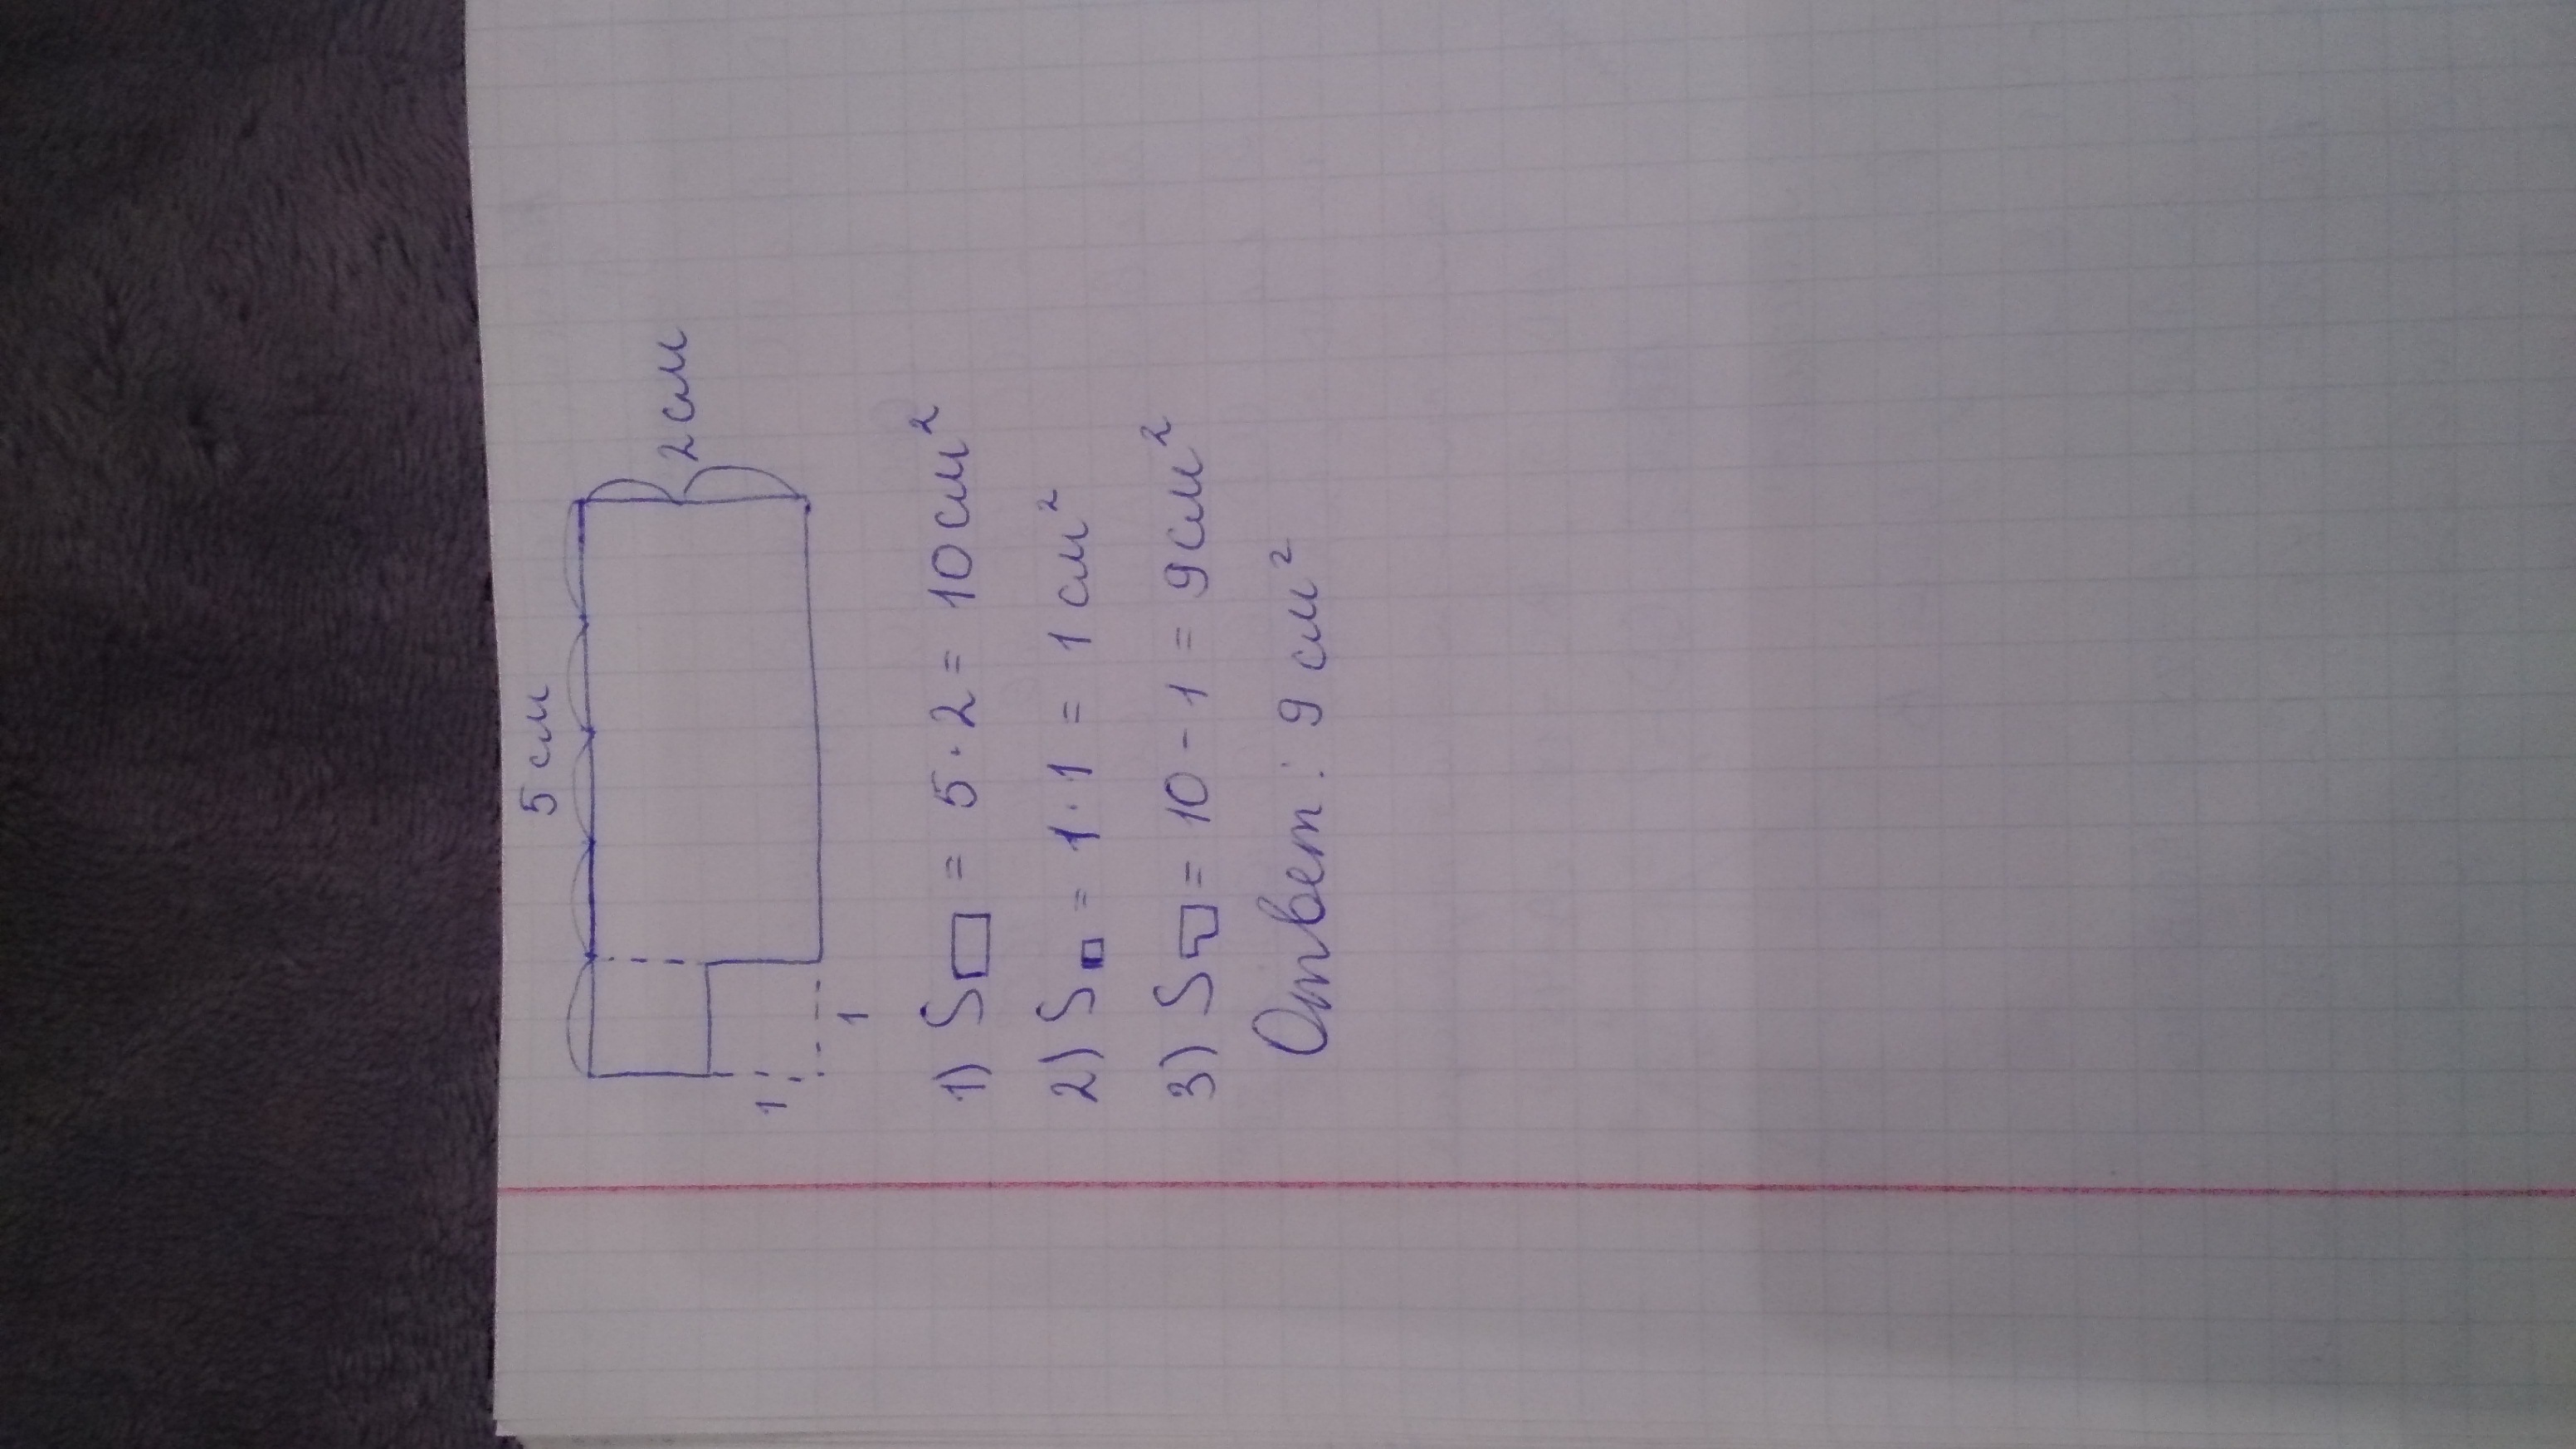 5 см
2 см
1
1
1) S▭ = 5 · 2 = 10 см²
2) S▫ = 1 · 1 = 1 см²
3) S = 10 - 1 = 9 см²
Ответ: 9 см²